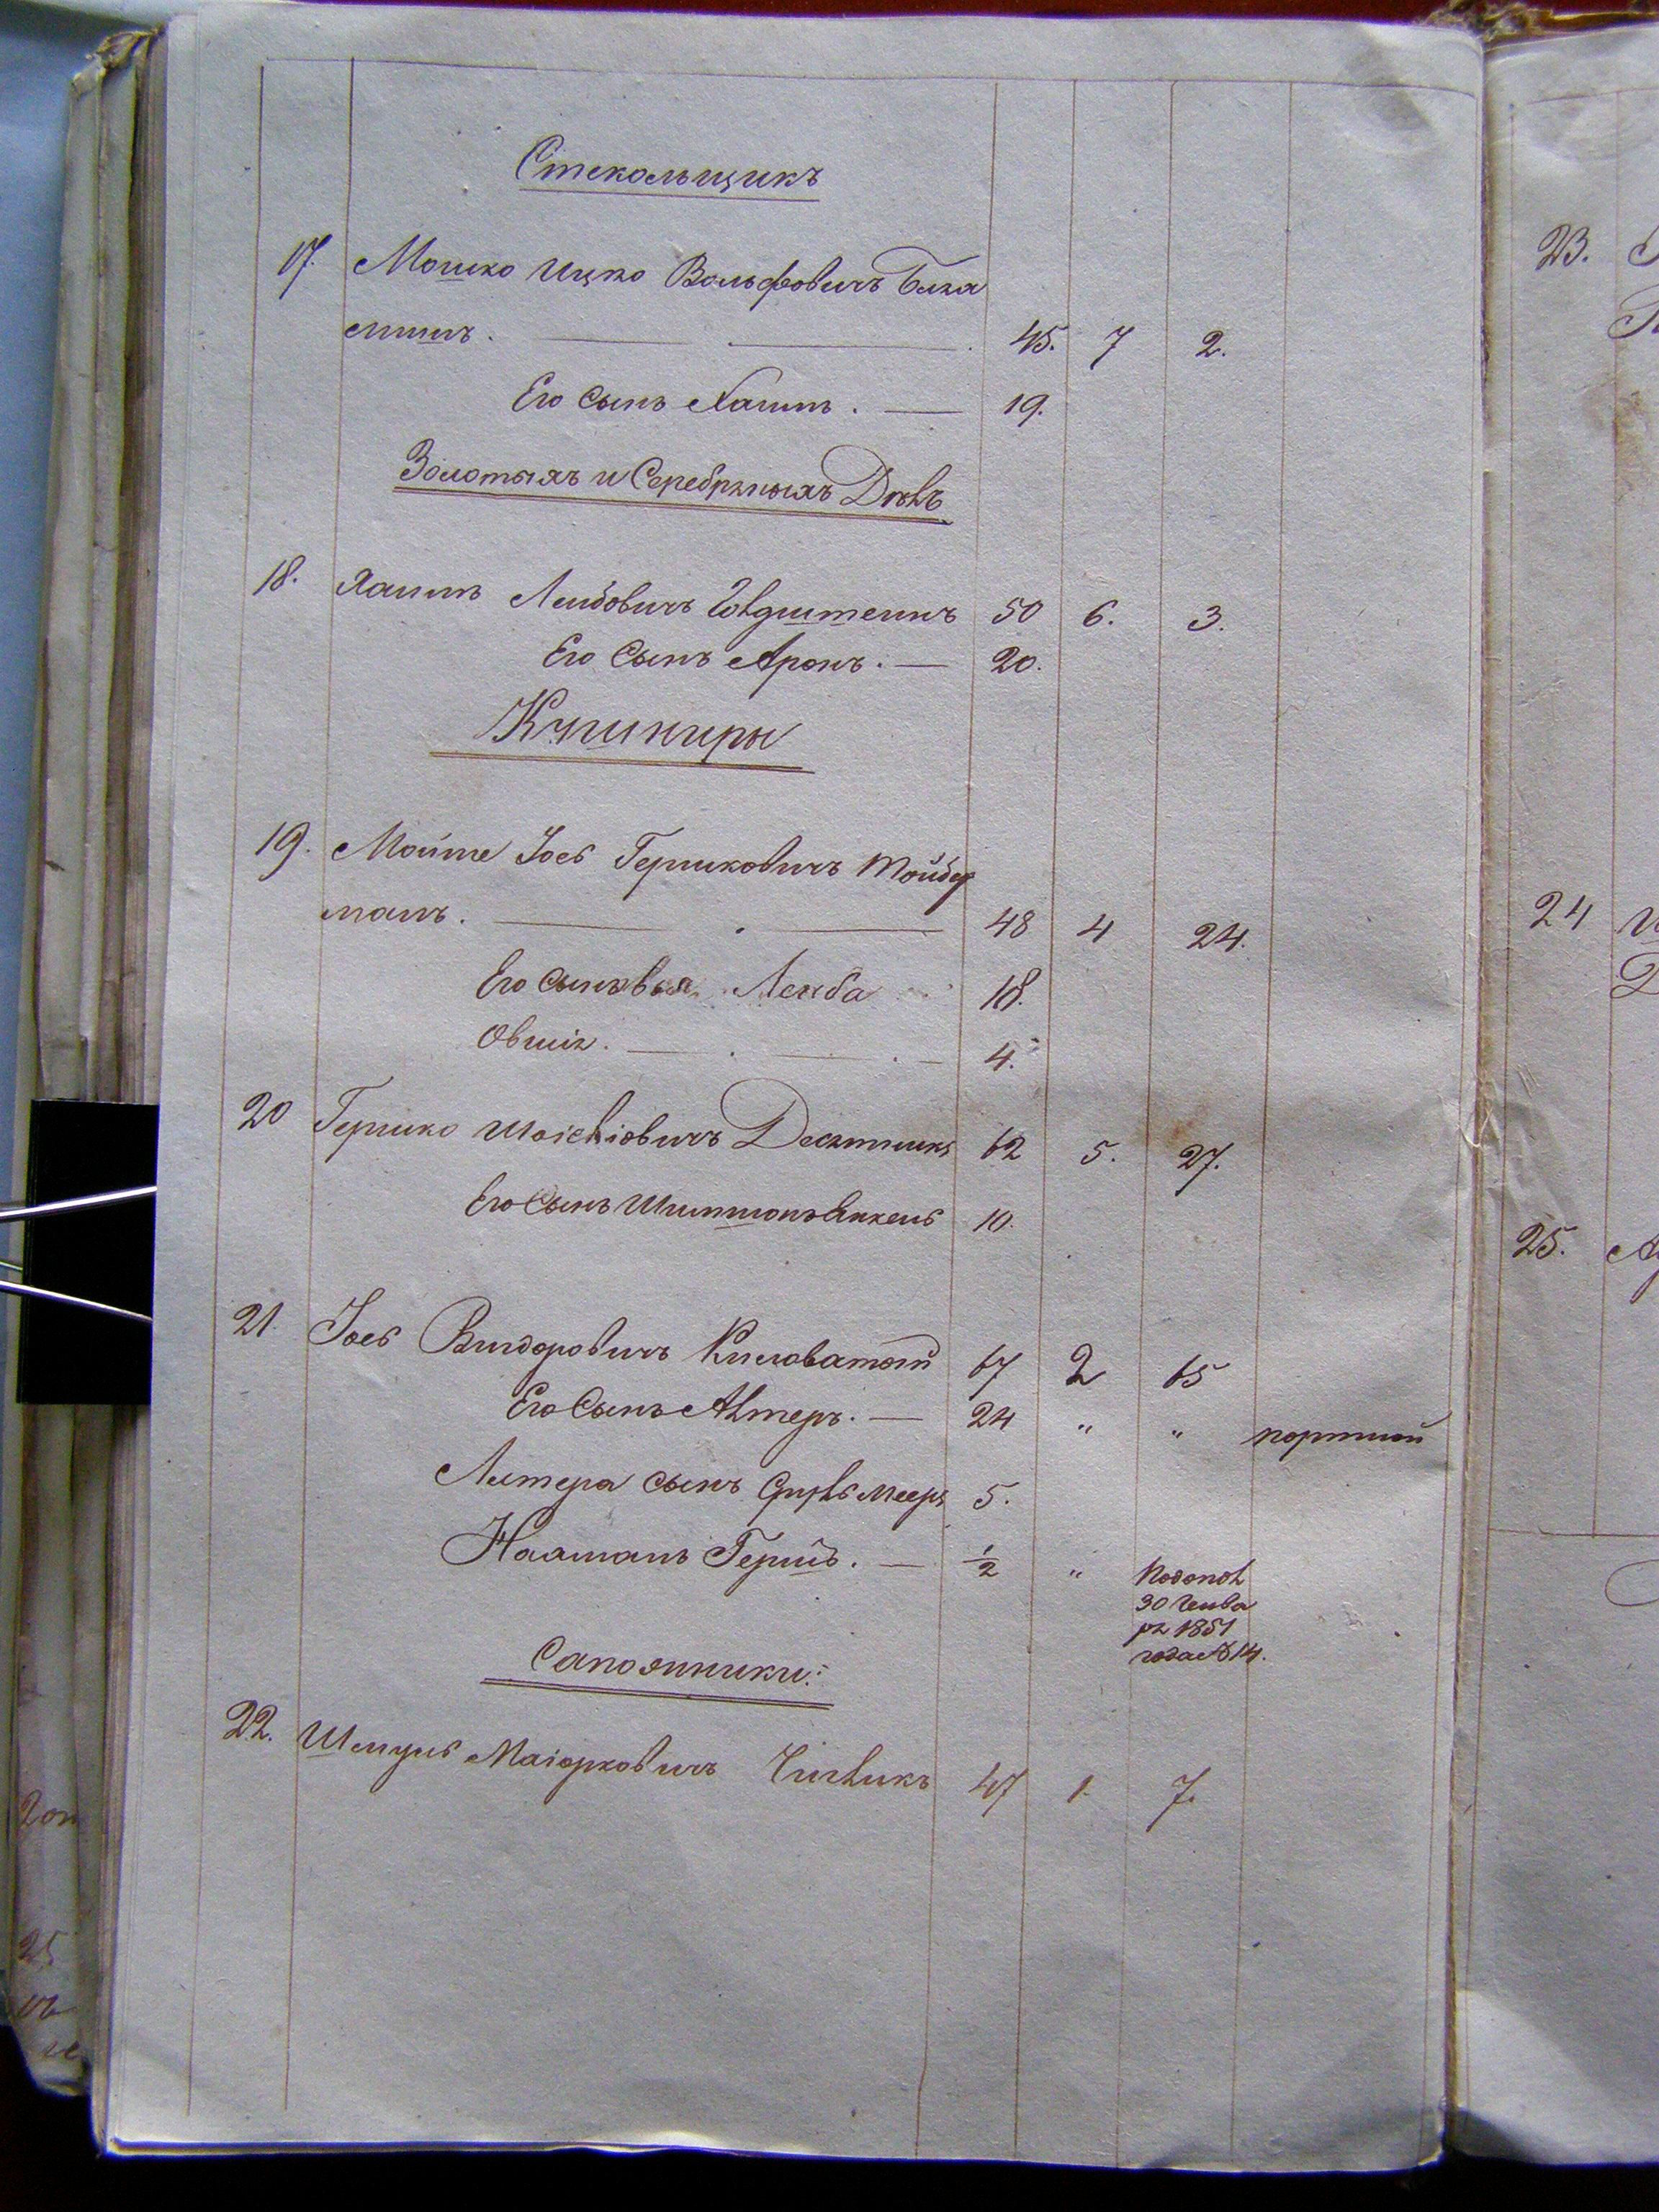 Стекольщикъ
17. Мошко Ицко Вольфовичъ Блха
минъ. 45. 7 2.
Его сынъ Хаимъ. 19.
Золотыхъ и Серебряныхъ Дѣлъ
18. Хаимъ Лейбовичъ Голдштеинъ 50 6. 3.
Его сынъ Аронъ. 20.
Кушниры
19. Мойше Іось Гершковичъ Тойбер
манъ. 48 4 24.
Его сыновья Лейба 18.
Овшія. 4.
20 Гершко 62 5. 27.
Его сынъ Шимшонъ Янкель 10.
21. Іось Вигдоровичъ Кисловатой 67 2 65
Его сынъ Алтеръ. 24 " " портной
Алтера сынъ Сруль Мееръ 5.
Нахманъ Гершъ. 1/2 " подопол
30 Генва
ря 1851
года № 14.
Сапожники:
22. Шмуль Маіорковичъ 47 1. 7.
23.
24
25.